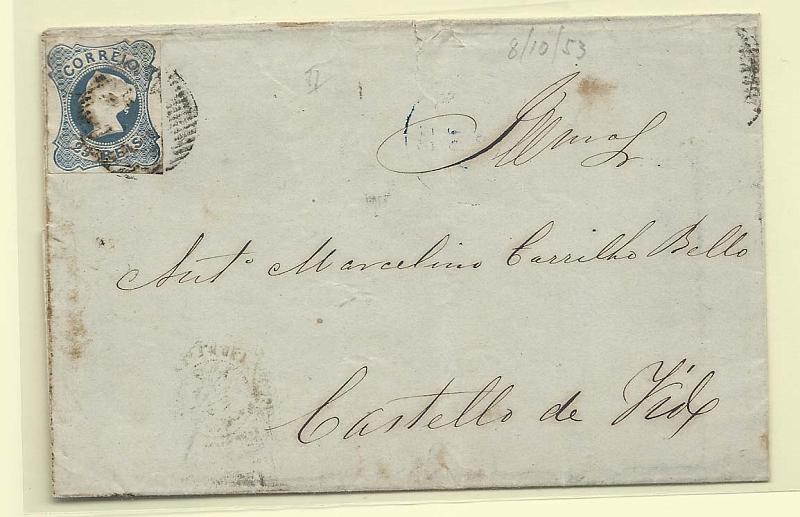 CORREIO
25 REIS
8/10/53
II
Antº Marcelino Carrilho Bello
Castello de Vide